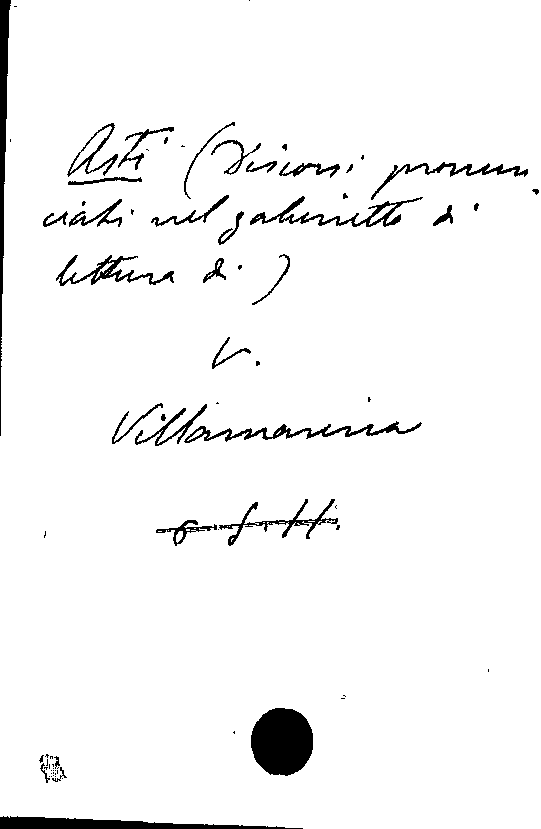 Asti (Discorsi pronun
ciati nel gabinetto di
lettura di)
V.
Villamarina
6 g. 11.